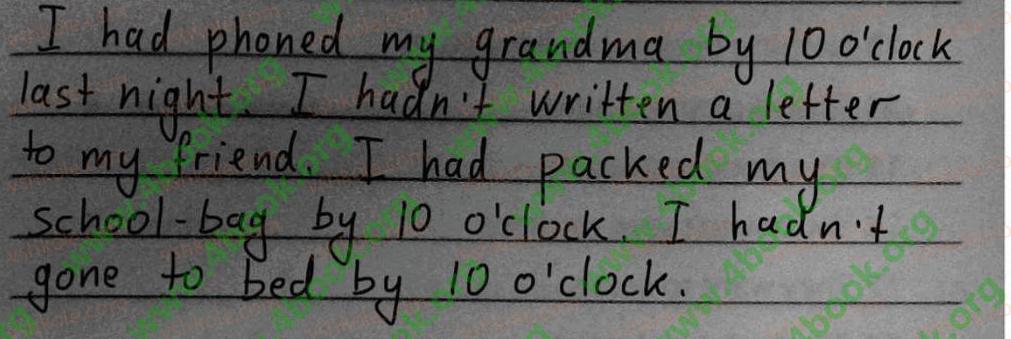 I had phoned my grandma by 10 o'clock
last night. I hadn't written a letter
to my friend. I had packed my
school-bag by 10 o'clock. I hadn't
gone to bed by 10 o'clock.
www.4book.org